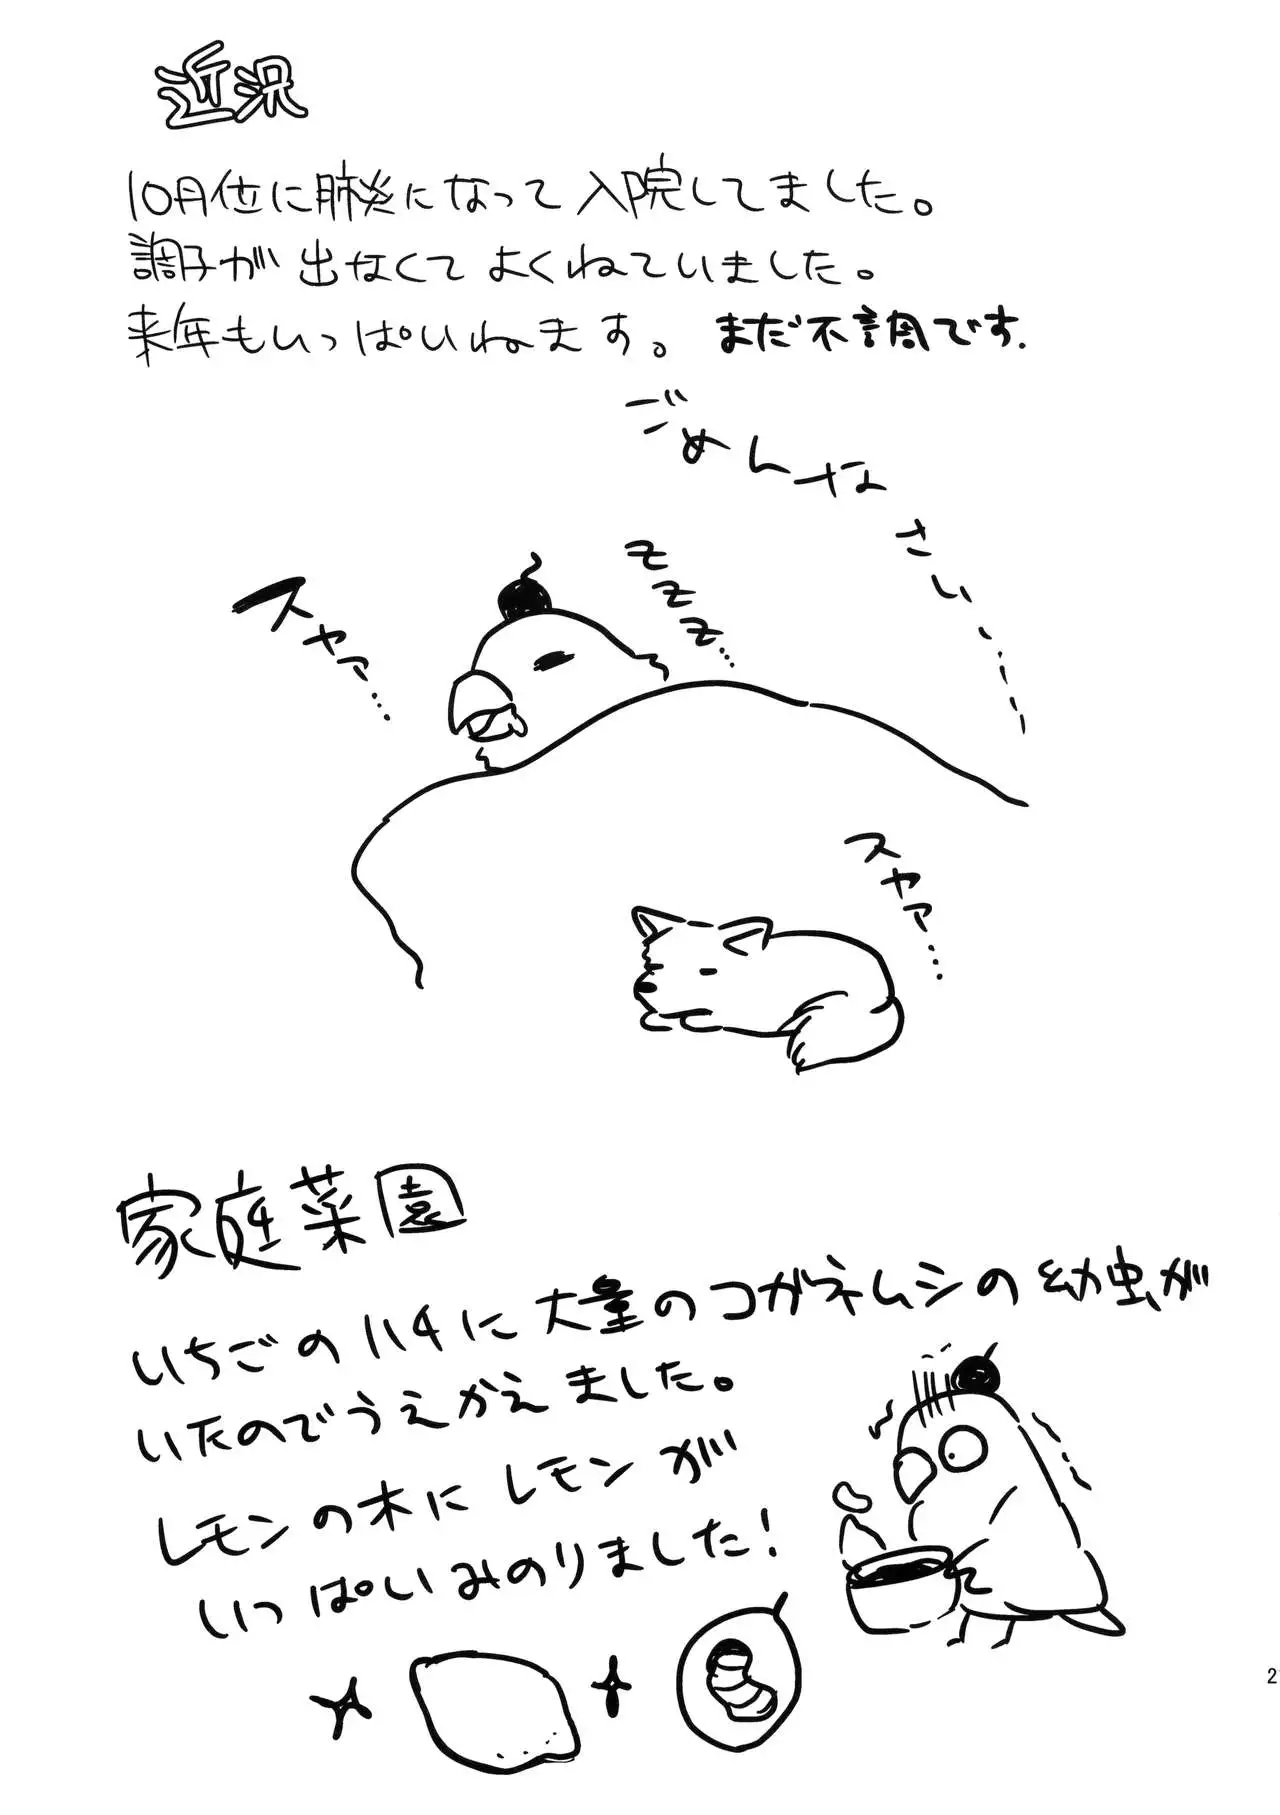 近況
10月位に肺炎になって入院してました。
調子が出なくてよくねていました。
来年もいっぱいねます。まだ不調です.
ごめんなさい…
zzz…
スヤァ…
スヤァ…
家庭菜園
いちごのハチに大量のコガネムシの幼虫が
いたのでうえかえました。
レモンの木にレモンが
いっぱいみのりました!
2